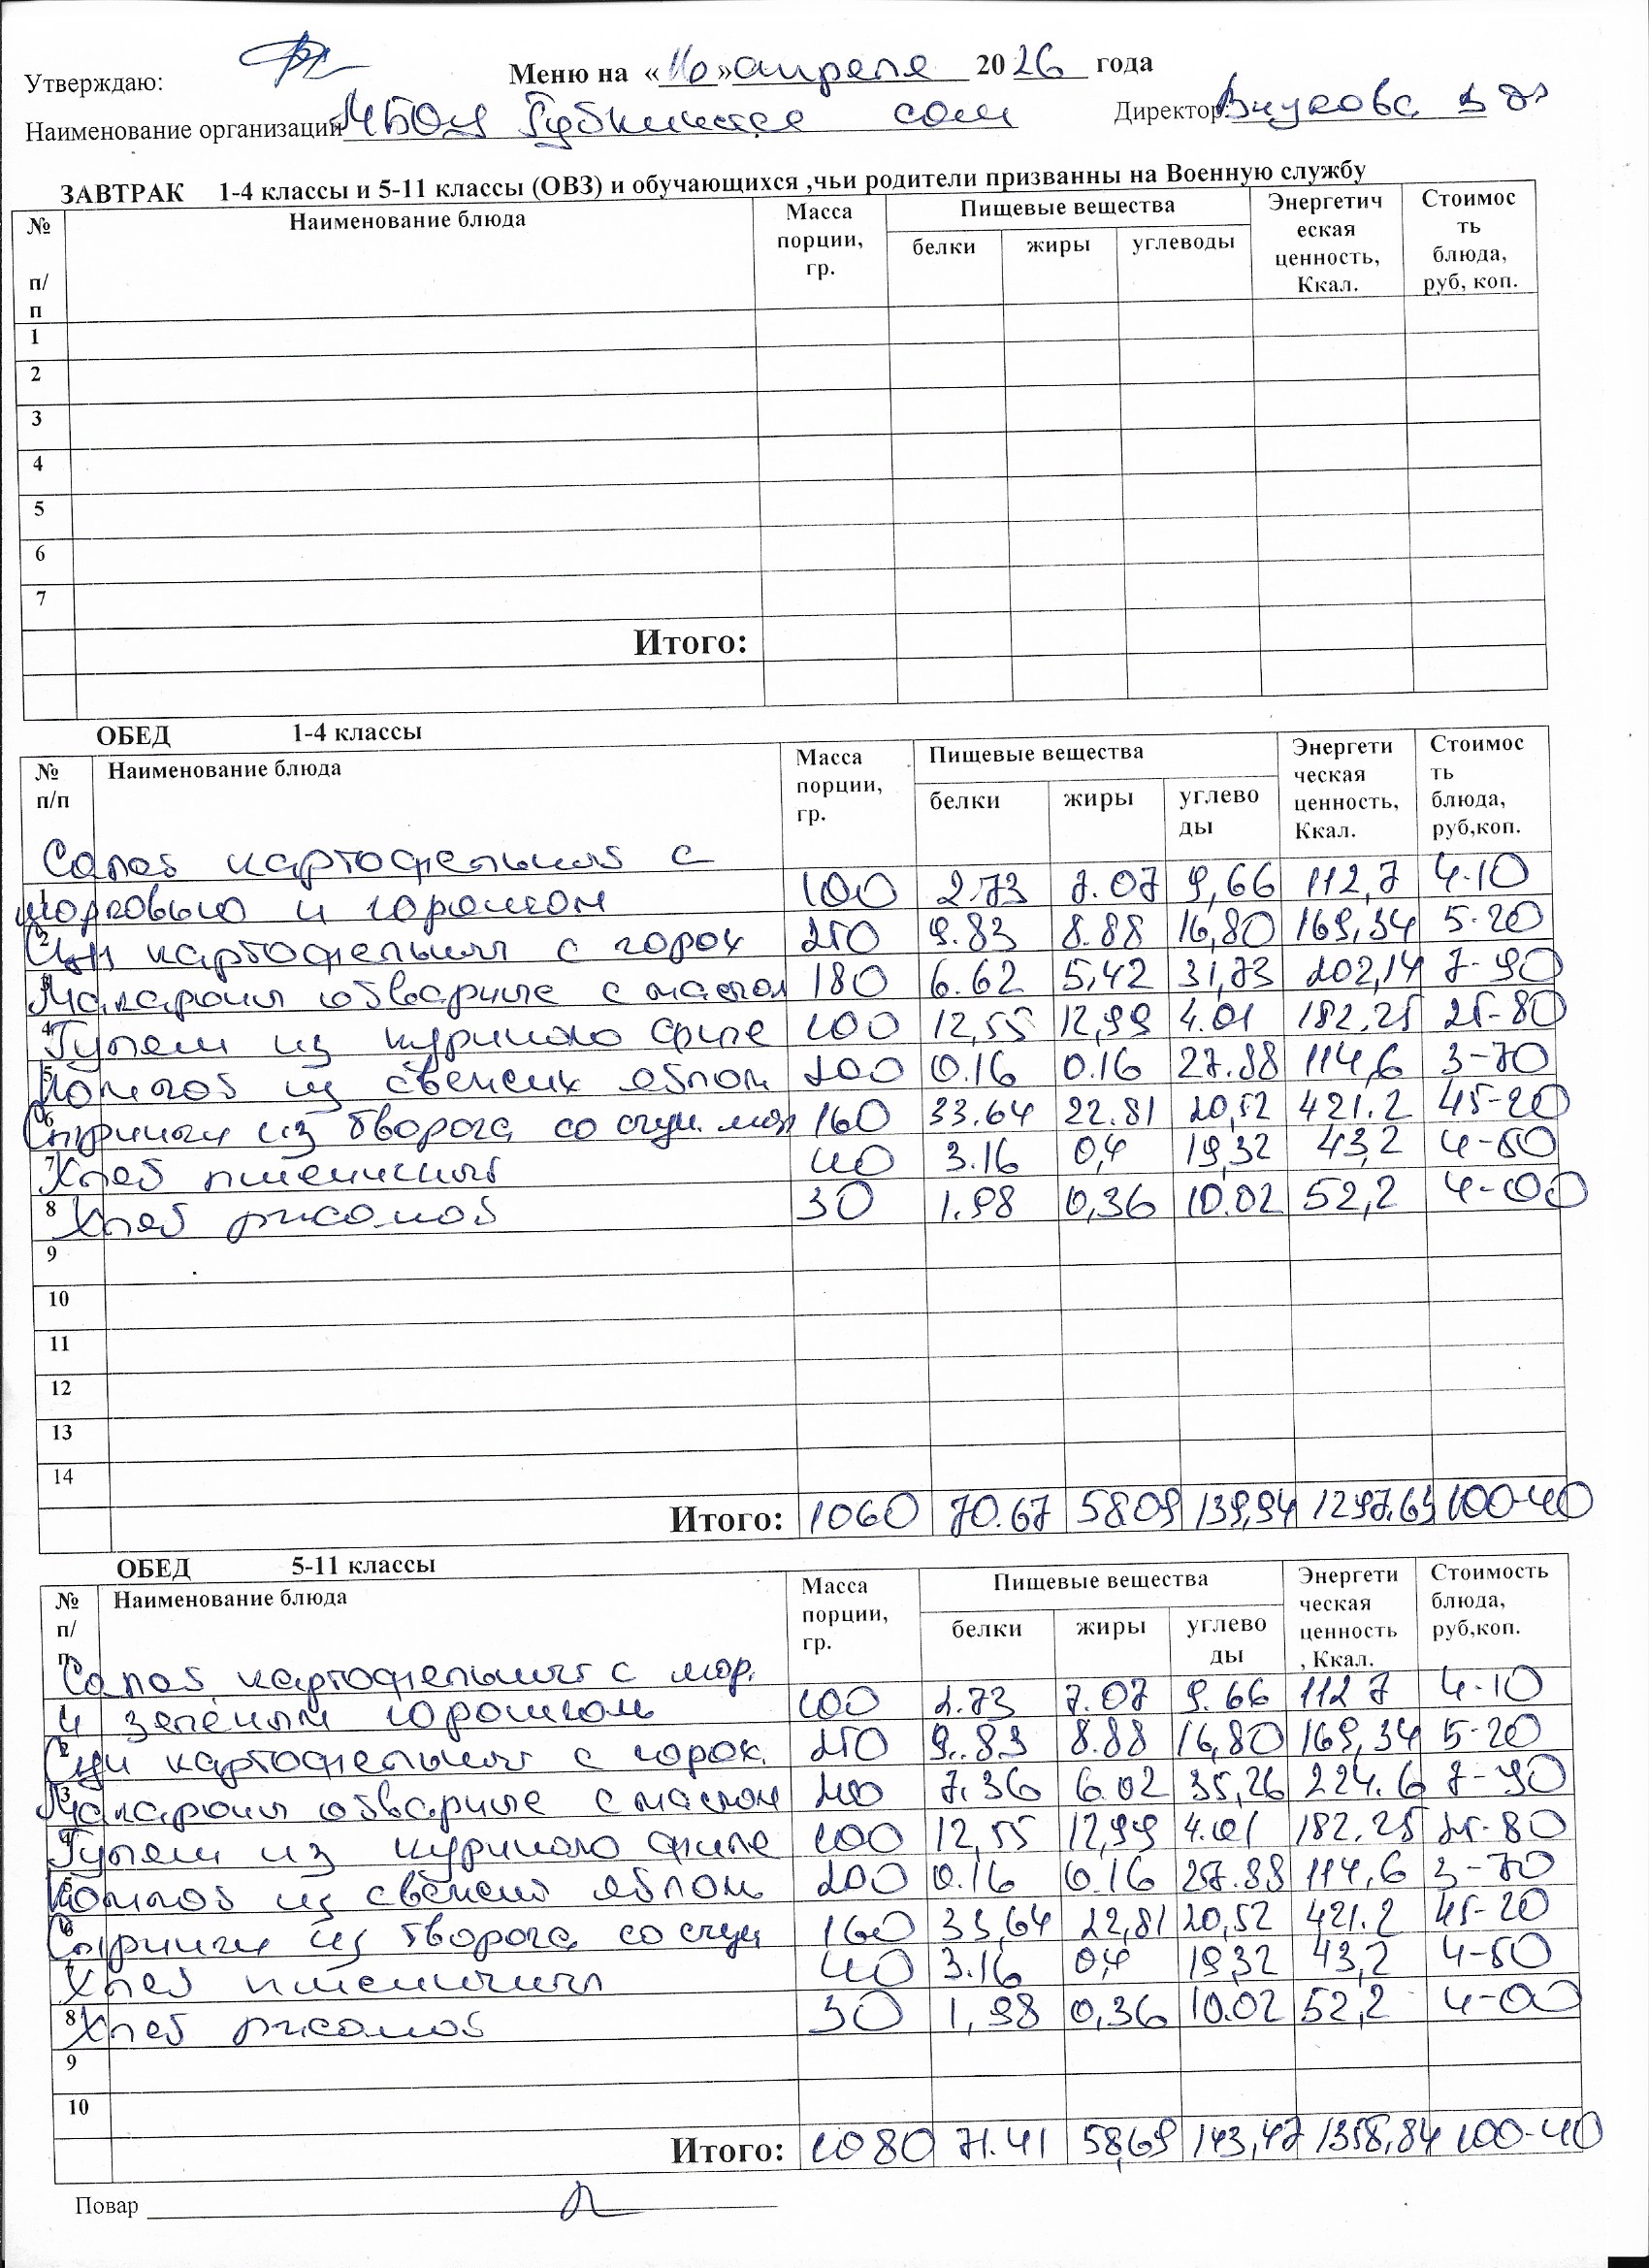 Утверждаю:
Меню на «16» апреля 2026 года
Наименование организации МБОУ СОШ Директор: Внукова
ЗАВТРАК 1-4 классы и 5-11 классы (ОВЗ) и обучающихся ,чьи родители призванны на Военную службу
№ п/п Наименование блюда Масса порции, гр. Пищевые вещества белки жиры углеводы Энергетическая ценность, Ккал. Стоимость блюда, руб, коп.
1
2
3
4
5
6
7
Итого:
ОБЕД 1-4 классы
№ п/п Наименование блюда Масса порции, гр. Пищевые вещества белки жиры углеводы Энергетическая ценность, Ккал. Стоимость блюда, руб,коп.
Салат картофельный с
1 морковью и горошком 100 2.73 7.07 9,66 112,7 4-10
2 картофельный с горох 250 9.83 8.88 16,80 169,34 5-20
3 Макароны отварные с маслом 180 6.62 5,42 31,73 202,14 7-90
4 Гуляш из куриного филе 100 12,55 12,99 4.01 182,25 25-80
5 Компот из свежих яблок 200 0.16 0.16 27.88 114,6 3-70
6 Сырники из творога со сгущ. мол 160 33.64 22.81 20,52 421.2 45-20
7 Хлеб пшеничный 40 3.16 0,4 19,32 43,2 4-50
8 Хлеб ржаной 30 1.98 0,36 10.02 52,2 4-00
9
10
11
12
13
14
Итого: 1060 70.67 58.09 139,94 1297.63 100-40
ОБЕД 5-11 классы
№ п/п Наименование блюда Масса порции, гр. Пищевые вещества белки жиры углеводы Энергетическая ценность, Ккал. Стоимость блюда, руб,коп.
Салат картофельный с мор.
и зелёным горошком 100 2.73 7.07 9.66 112 7 4-10
2 картофельный с горох. 250 9.83 8.88 16,80 169,34 5-20
3 Макароны отварные с маслом 200 7.36 6.02 35,26 224.6 7-90
4 Гуляш из куриного филе 100 12,55 12,99 4.01 182.25 25-80
5 Компот из свежих яблок 200 0.16 0.16 27.88 114,6 3-70
6 Сырники из творога со сгущ 160 33,64 22,81 20,52 421.2 45-20
7 Хлеб пшеничный 40 3.16 0,4 19,32 43,2 4-50
8 Хлеб ржаной 30 1,98 0,36 10.02 52,2 4-00
9
10
Итого: 1080 71.41 58,69 143,47 1358,84 100-40
Повар